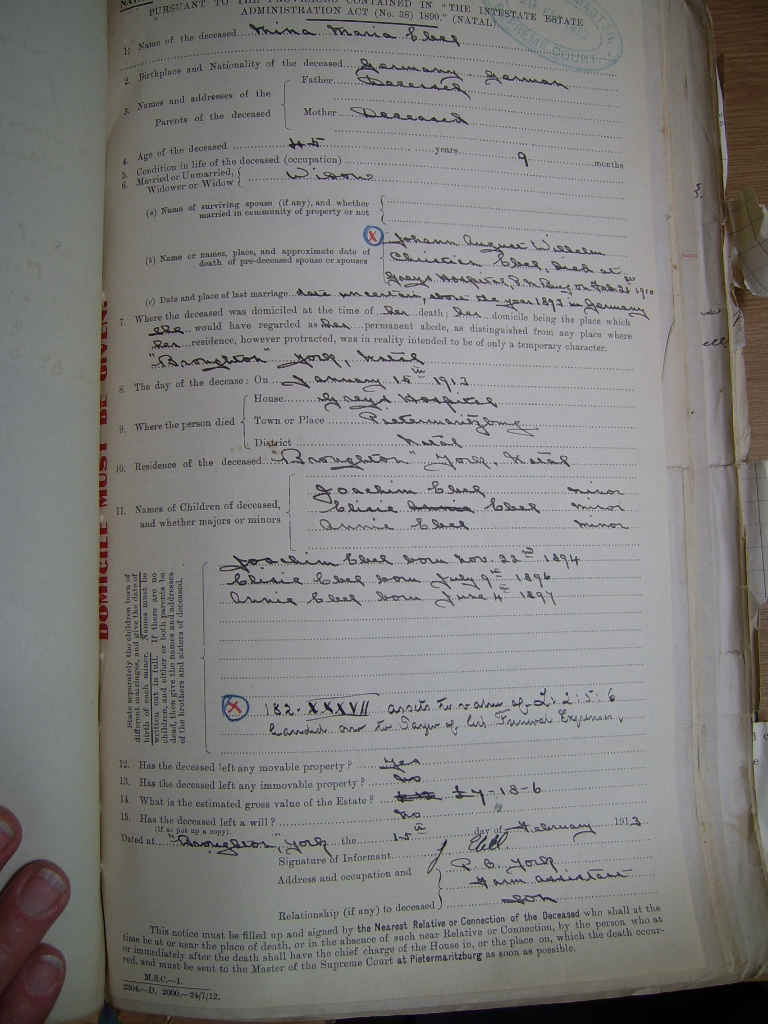 PURSUANT TO THE PROVISIONS CONTAINED IN "THE INTESTATE ESTATE
ADMINISTRATION ACT (No. 38) 1890." (NATAL)
1. Name of the deceased Mina Maria Ebel
2. Birthplace and Nationality of the deceased Germany German
3. Names and addresses of the Parents of the deceased
Father Deceased
Mother Deceased
4. Age of the deceased 45 years 9 months
5. Condition in life of the deceased (occupation)
6. Married or Unmarried, Widower or Widow Widow
(a) Name of surviving spouse (if any), and whether married in community of property or not
(b) Name or names, place, and approximate date of death of pre-deceased spouse or spouses
X Johann August Wilhelm
Christien Ebel, died at
Greys Hospital, P.M.Burg on Feb 1910
(c) Date and place of last marriage date uncertain, above the year 1893 in Germany
7. Where the deceased was domiciled at the time of her death; her domicile being the place which
she would have regarded as her permanent abode, as distinguished from any place where
her residence, however protracted, was in reality intended to be only a temporary character.
"Broughton" York, Natal
8. The day of the decease: On January 15th 1913
9. Where the person died
House Greys Hospital
Town or Place Pietermaritzburg
District Natal
10. Residence of the deceased "Broughton" York, Natal
11. Names of Children of deceased, and whether majors or minors
Joachim Ebel minor
Elisie Annie Ebel minor
Annie Ebel minor
State separately the children born of
different marriages, and give the date of
birth of each minor. Names must be
written out in full. If there are no
children, and either or both parents be
dead, then give the names and addresses
of the brothers and sisters of deceased.
Joachim Ebel born Nov. 22nd 1894
Elisie Ebel born July 9th 1896
Annie Ebel born June 4th 1897
X 182-XXXVII assets to value of £1:2:5:6
handed over to Payer of his Funeral Expenses,
12. Has the deceased left any movable property? Yes
13. Has the deceased left any immovable property? No
14. What is the estimated gross value of the Estate? £7-18-6
15. Has the deceased left a will? No
(If so put up a copy).
Dated at "Broughton", York the 15th day of February 1913
Signature of Informant J Ebel
Address and occupation and P.O. York
Farm assistant
Relationship (if any) to deceased Son
This notice must be filled up and signed by the Nearest Relative or Connection of the Deceased who shall at the
time be at or near the place of death, or in the absence of such near Relative or Connection, by the person who at
or immediately after the death shall have the chief charge of the House in, or the place on, which the death occur-
red, and must be sent to the Master of the Supreme Court at Pietermaritzburg as soon as possible.
M.S.C.—1.
2304.—D. 2000.—24/7/12.
DOMICILE MUST BE GIVEN.